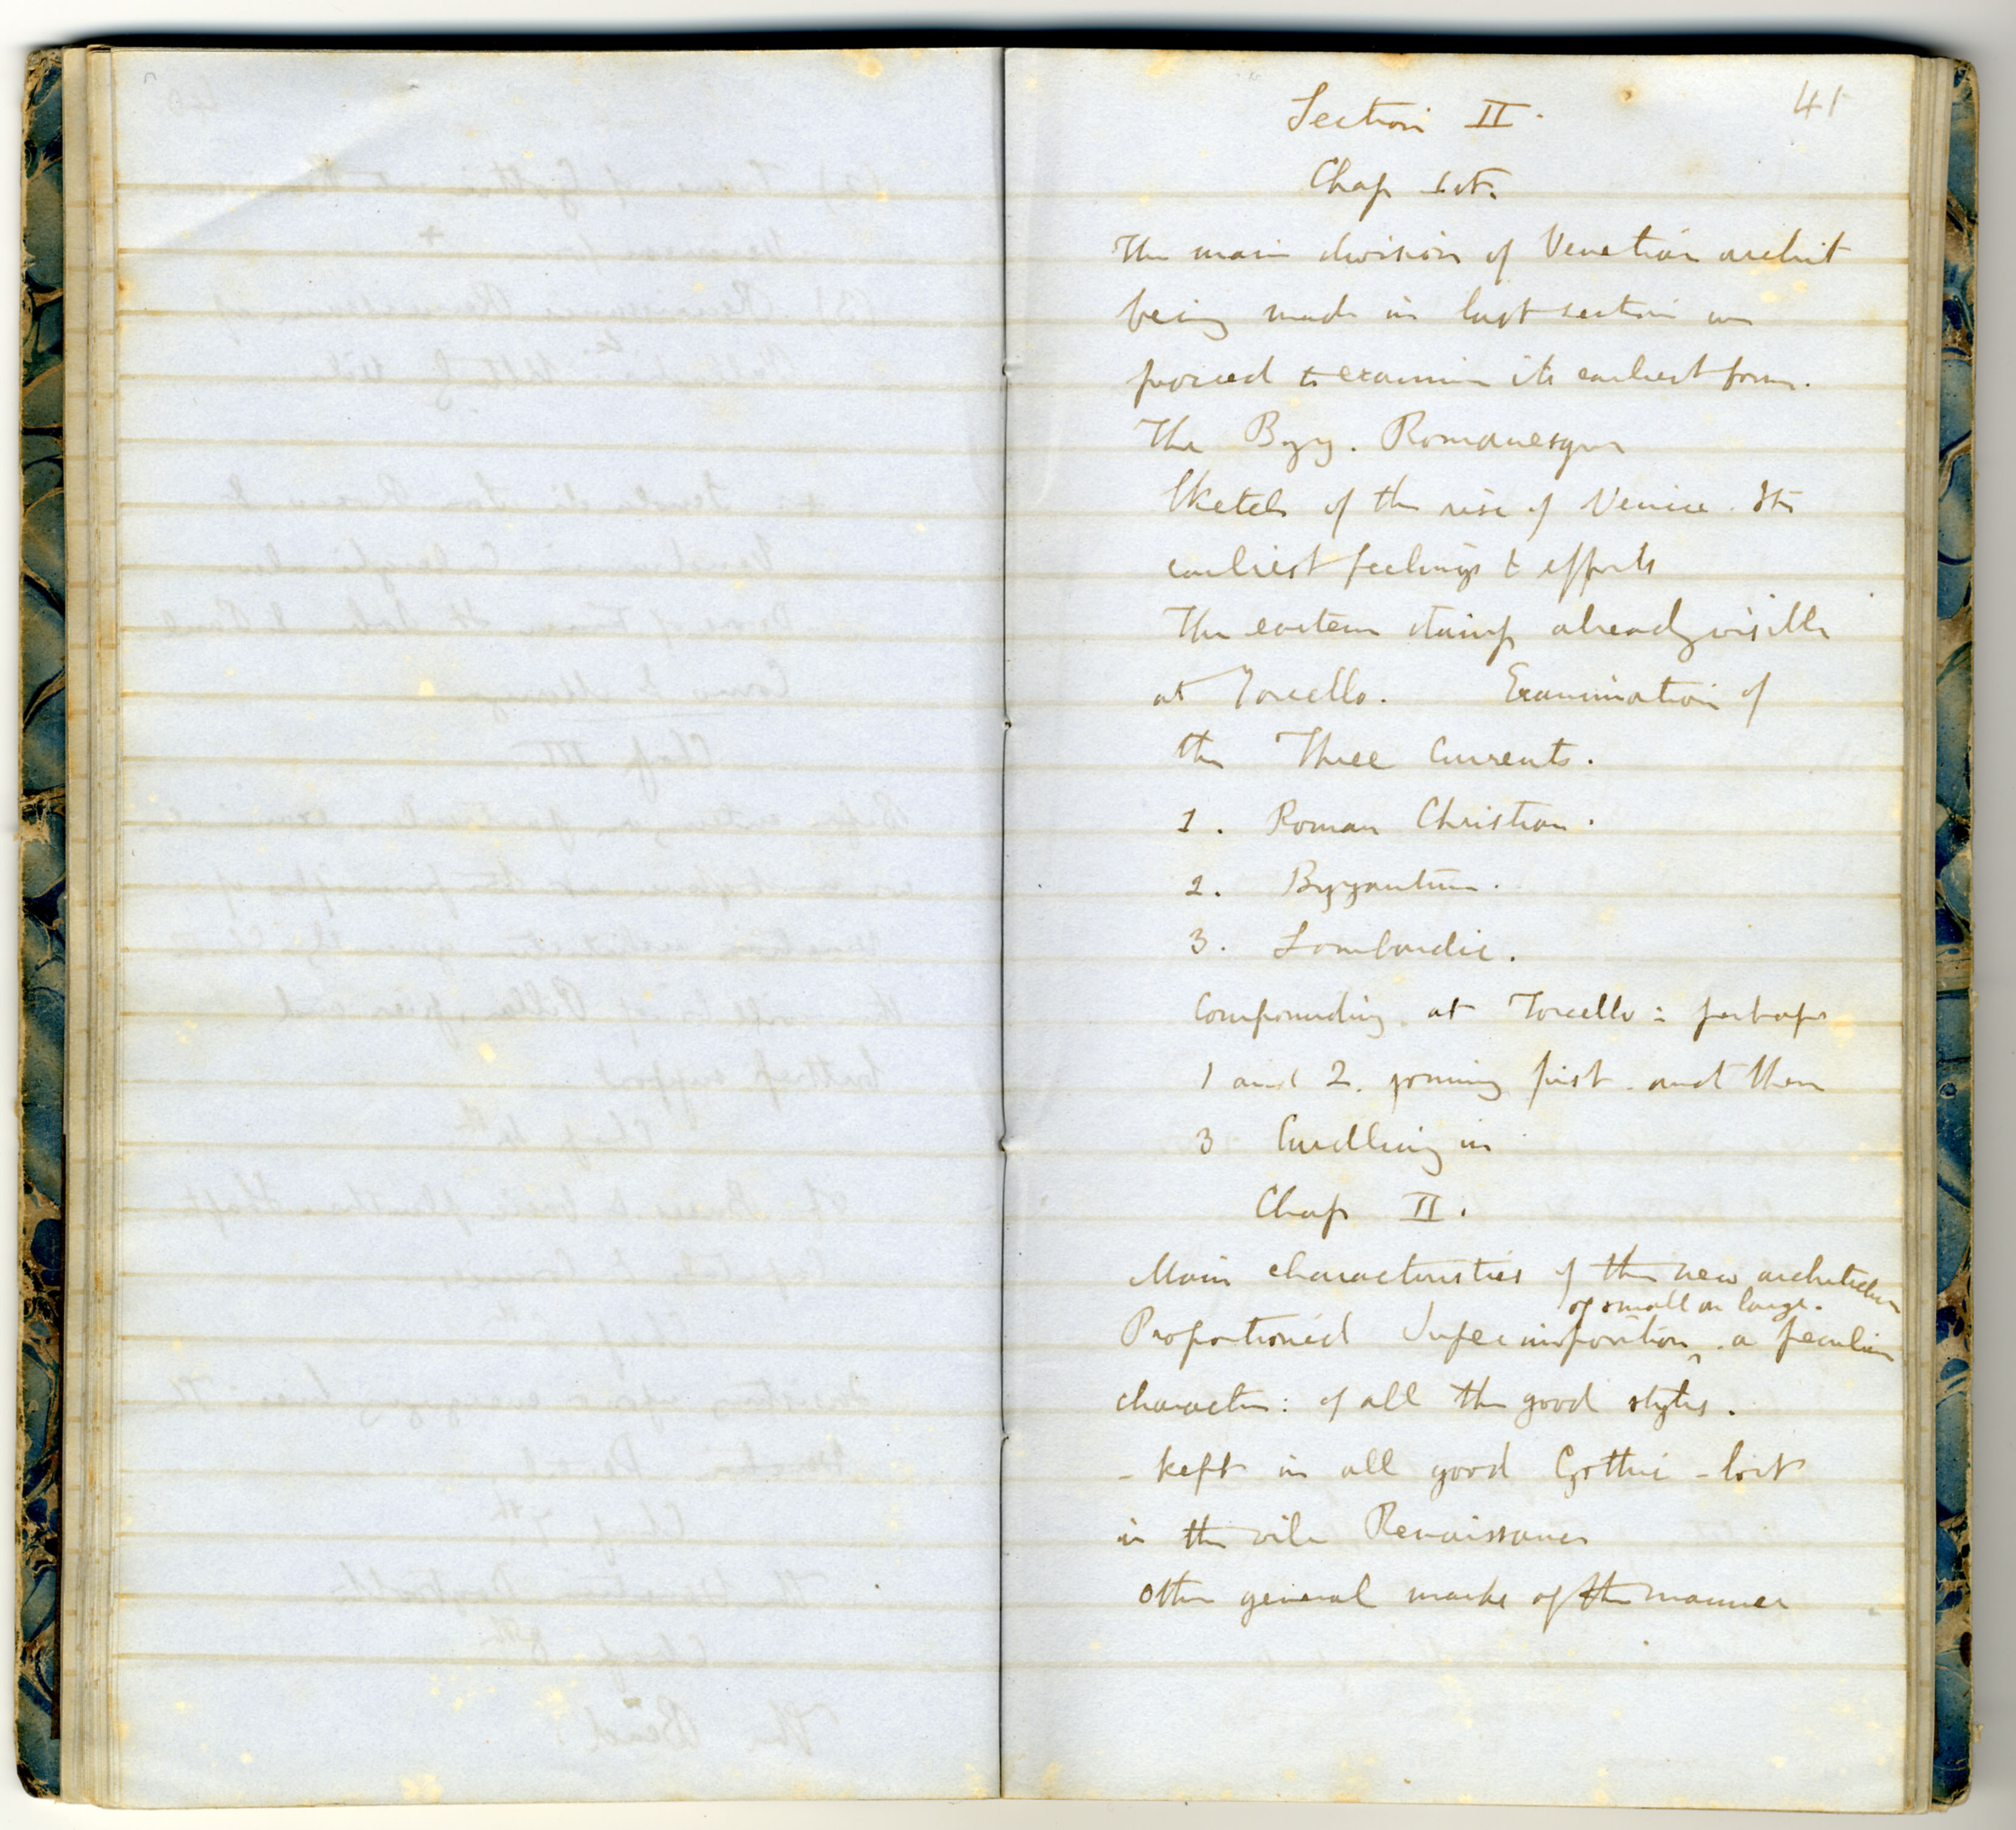 41
Section II.
Chap 1st.
The main division of Venetian archit
being made in last section we
proceed to examine its earliest form.
The Byz. Romanesque
Sketch of the rise of Venice. Its
earliest feelings & efforts
The eastern stamp already visible
at Torcello. Examination of
the Three Currents.
1. Roman Christian.
2. Byzantine.
3. Lombardic.
Compounding at Torcello: perhaps
1 and 2. joining first and then
3 Curdling in
Chap II.
Main characteristics of the new architecture
of small on large.
Proportioned Superimposition . a peculiar
character: of all the good styles.
- kept in all good Gothic - lost
in the vile Renaissance
Other general marks of the manner